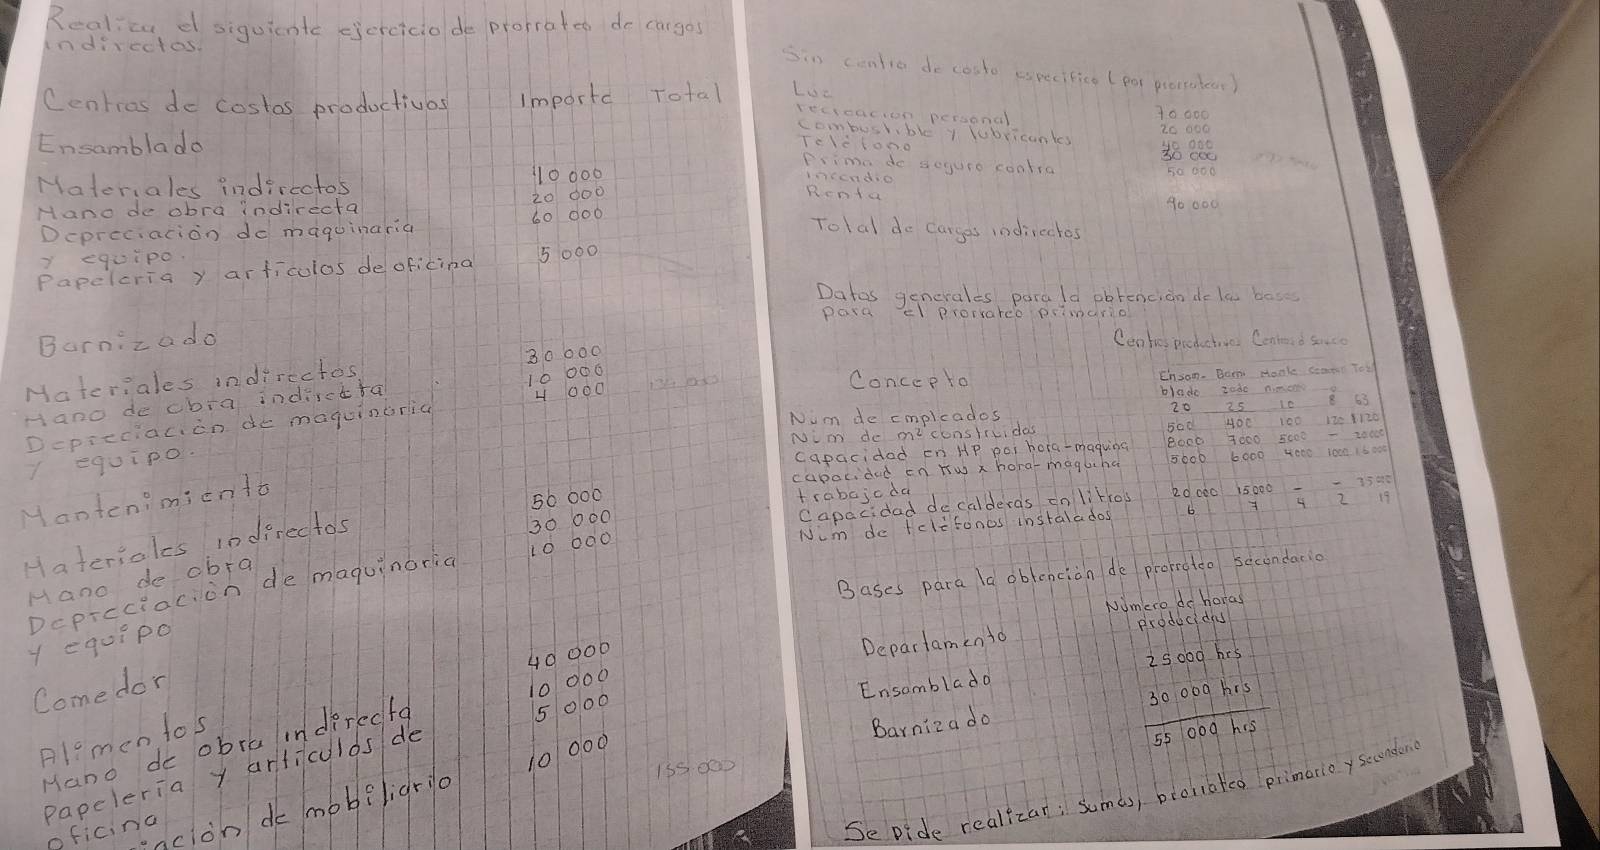 Realizar el siguiente ejercicio de prorrateo de cargos
indirectos.
Centros de costos productivos Importe Total
Ensamblado
Materiales indirectos 110 000
Mano de obra indirecta 20 000
Depreciación de maquinaria 60 000
y equipo.
Papeleria y articulos de oficina 5 000
Barnizado
Materiales indirectos 30 000
Mano de obra indirecta 10 000
Depreciación de maquinaria 4 000
y equipo.
Mantenimiento
Materiales indirectos 50 000
Mano de obra 30 000
Depreciación de maquinaria 10 000
y equipo
Comedor
Alimentos 40 000
Mano de obra indirecta 10 000
papeleria y articulos de 5 000
oficina
ación de mobiliario 10 000
155 000
Sin centro de costo especifico (por prorratear)
Luz 70 000
recreacion personal 20 000
Combustible y lubricantes 40 000
Teléfono 30 000
Prima de seguro contra
incendio 50 000
Renta 90 000
Total de cargos indirectos
Datos generales para la obtención de las bases
para el prorrateo primario
Centros productivos Centros d
Concepto Ensam- Barni Mante Total
blado zado nimiento
Núm de empleados 20 25 10 8 63
Núm de m² construidos 500 400 100 120 1120
Capacidad en HP por hora-maquina 8000 7000 5000 - 20000
capacidad en Kw x hora-maquina 5000 6000 4000 1000 16000
trabajada
Capacidad de calderas en litros 20 000 15000 - - 35000
Núm de teléfonos instalados 6 7 4 2 19
Bases para la obtención de prorrateo secundario
Número de horas
Departamento producidas
Ensamblado 25 000 hrs
Barnizado 30 000 hrs
55 000 hrs
Se pide realizar: sumas, prorrateo primario y secundario